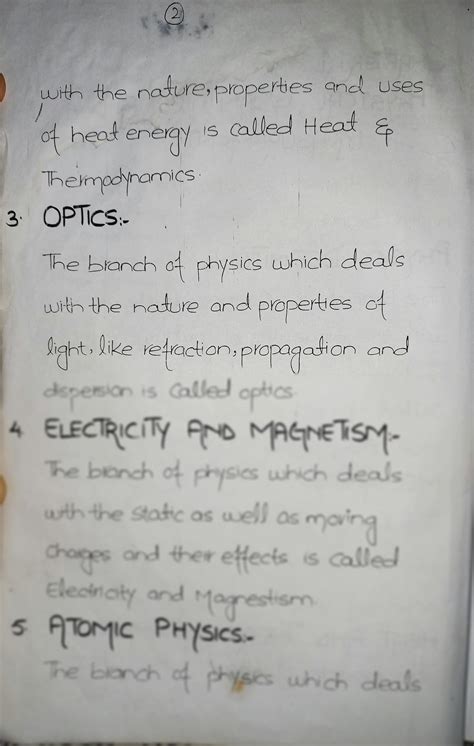 2
with the nature, properties and uses
of heat energy is called Heat &
Thermodynamics.
3. OPTICS:-
The branch of physics which deals
with the nature and properties of
light, like refraction, propagation and
dispersion is called optics.
4. ELECTRICITY AND MAGNETISM:-
The branch of physics which deals
with the static as well as moving
charges and their effects is called
Electricity and Magnestism.
5. ATOMIC PHYSICS:-
The branch of physics which deals